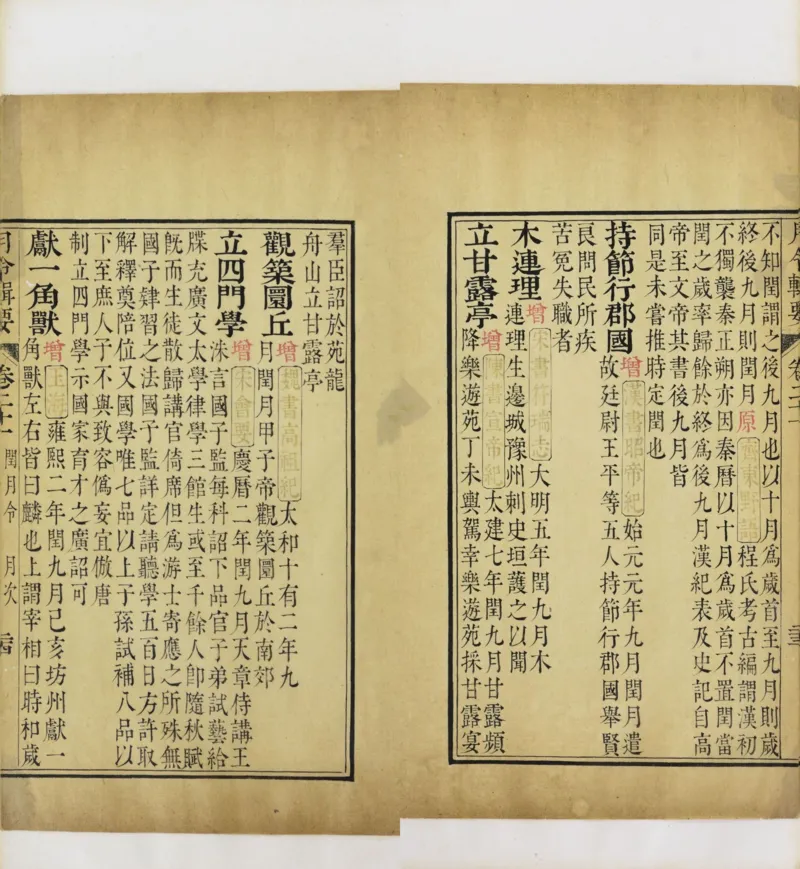 月令輯要 卷二十一
不知閏謂之後九月也以十月爲歲首至九月則歲
終後九月則閏月原齊東野語程氏考古編謂漢初
不獨襲秦正朔亦因秦曆以十月爲歲首不置閏當
閏之歲率歸餘於終爲後九月漢紀表及史記自高
帝至文帝其書後九月皆
同是未嘗推時定閏也
持節行郡國增漢書昭帝紀始元元年九月閏月遣
故廷尉王平等五人持節行郡國舉賢
良問民所疾
苦寃失職者
木連理增宋書符瑞志大明五年閏九月木
連理生邊城豫州刺史垣護之以聞
立甘露亭增陳書宣帝紀太建七年閏九月甘露頻
降樂遊苑丁未輿駕幸樂遊苑採甘露宴
羣臣詔於苑龍
舟山立甘露亭
觀築圜丘增魏書高祖紀太和十有二年九
月閏月甲子帝觀築圜丘於南郊
立四門學增宋會要慶曆二年閏九月天章侍講王
洙言國子監每科詔下品官子弟試藝給
牒充廣文太學律學三館生或至千餘人卽隨秋賦
旣而生徒散歸講官倚席但爲游士寄應之所殊無
國子肄習之法國子監詳定請聽學五百日方許取
解釋奠陪位又國學唯七品以上子孫試補八品以
下至庶人子不與致容僞妄宜倣唐
制立四門學示國家育才之廣詔可
獻一角獸增玉海雍熙二年閏九月己亥坊州獻一
角獸左右皆曰麟也上謂宰相曰時和歲
月令輯要 卷二十一 閏月令 月次